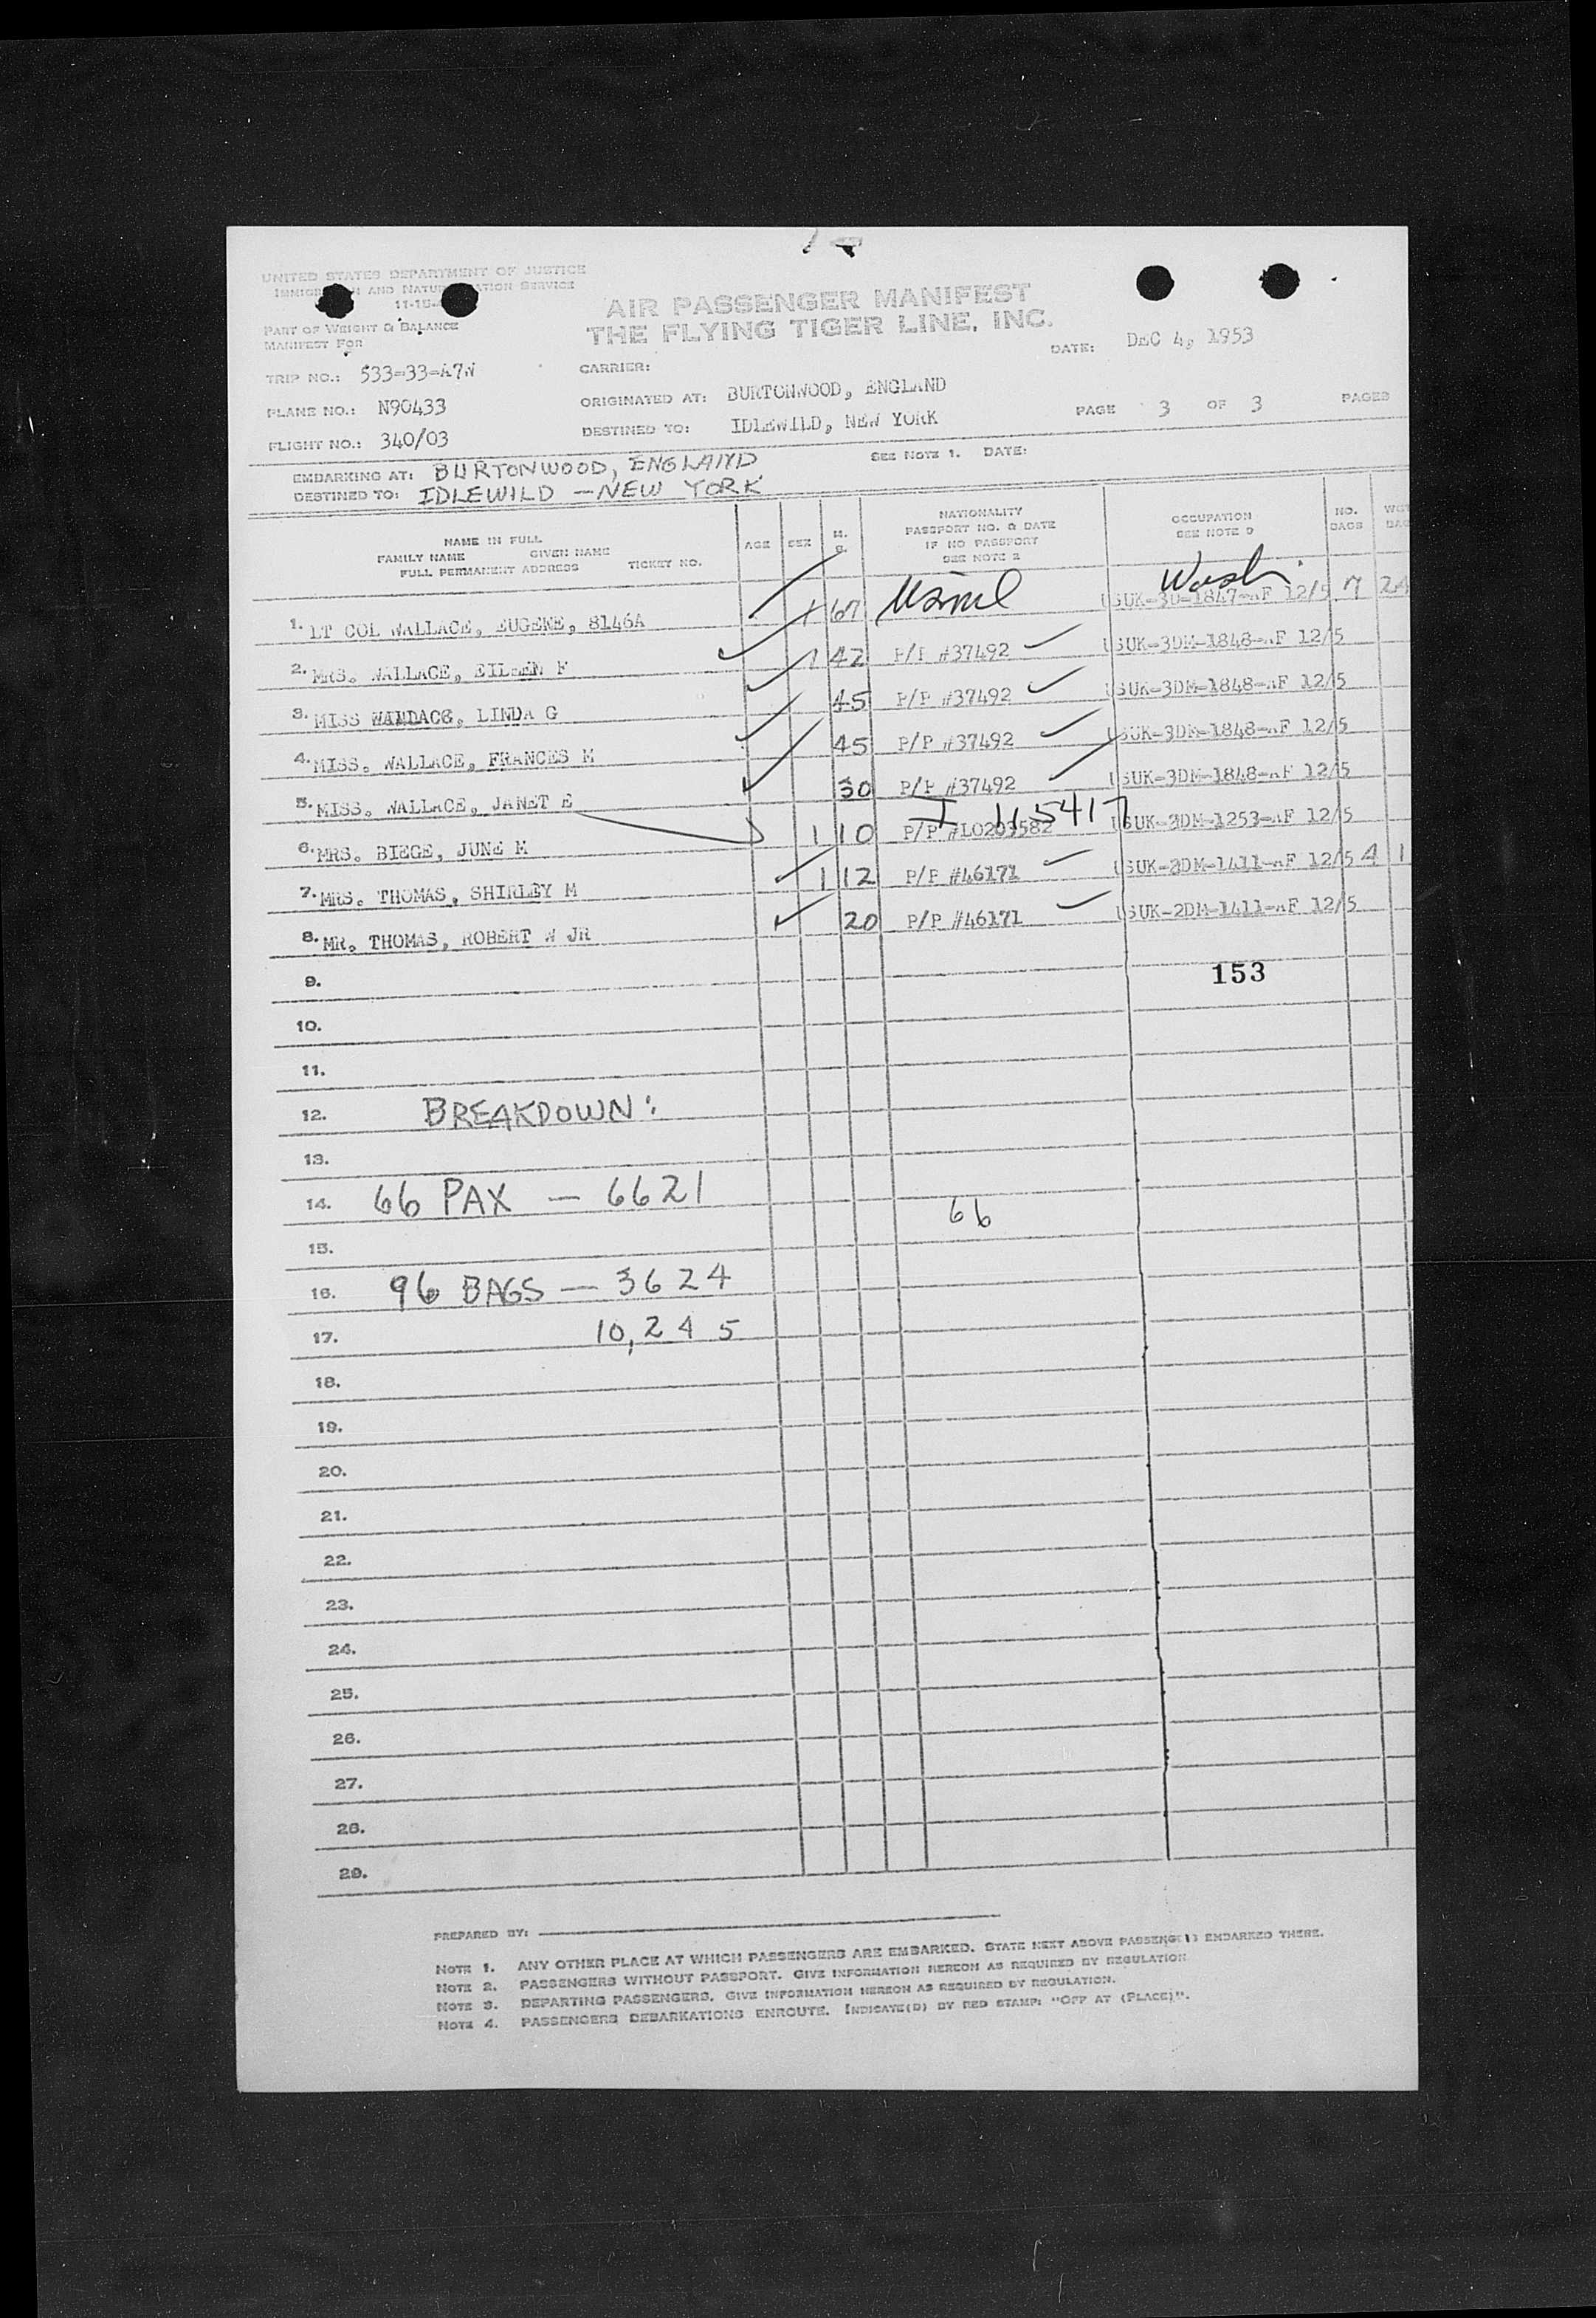 UNITED STATES DEPARTMENT OF JUSTICE
AIR PASSENGER MANIFEST
THE FLYING TIGER LINE, INC.
PART OF WEIGHT & BALANCE
MANIFEST FOR
DATE: DEC 4, 1953
TRIP NO.: 533-33-A7W
CARRIER:
PLANE NO.: N90433
ORIGINATED AT: BURTONWOOD, ENGLAND
PAGE 3 OF 3 PAGES
FLIGHT NO.: 340/03
DESTINED TO: IDLEWILD, NEW YORK
EMBARKING AT: BURTONWOOD, ENGLAND SEE NOTE 1. DATE:
DESTINED TO: IDLEWILD - NEW YORK
NAME IN FULL
FAMILY NAME GIVEN NAME
FULL PERMANENT ADDRESS TICKET NO.
AGE SEX
NATIONALITY
PASSPORT NO. & DATE
IF NO PASSPORT
SEE NOTE 2
OCCUPATION
SEE NOTE 9
NO.
BAGS
1. LT COL WALLACE, EUGENE, 8146A 1 67 Wash. USUK-3D-1847-AF 12/5 7 24
2. MRS. WALLACE, EILEEN F 1 42 P/P #37492 USUK-3DM-1848-AF 12/5
3. MISS WALLACE, LINDA G 45 P/P #37492 USUK-3DM-1848-AF 12/5
4. MISS. WALLACE, FRANCES M 45 P/P #37492 USUK-3DM-1848-AF 12/5
5. MISS. WALLACE, JANET E 30 P/P #37492 USUK-3DM-1848-AF 12/5
6. MRS. BIEGE, JUNE M 1 10 P/P #LO203582 I 115417 USUK-3DM-1253-AF 12/5
7. MRS. THOMAS, SHIRLEY M 1 12 P/P #46171 USUK-2DM-1411-AF 12/5 4 1
8. MR. THOMAS, ROBERT W JR 20 P/P #46171 USUK-2DM-1411-AF 12/5
9. 153
10.
11.
12. BREAKDOWN:
13.
14. 66 PAX - 6621 66
15.
16. 96 BAGS - 3624
17. 10,245
18.
19.
20.
21.
22.
23.
24.
25.
26.
27.
28.
29.
PREPARED BY:
NOTE 1. ANY OTHER PLACE AT WHICH PASSENGERS ARE EMBARKED. STATE NEXT ABOVE PASSENGE() EMBARKED THERE.
NOTE 2. PASSENGERS WITHOUT PASSPORT. GIVE INFORMATION HEREON AS REQUIRED BY REGULATION
NOTE 3. DEPARTING PASSENGERS. GIVE INFORMATION HEREON AS REQUIRED BY REGULATION.
NOTE 4. PASSENGERS DEBARKATIONS ENROUTE. INDICATE(D) BY RED STAMP: "OFF AT (PLACE)".